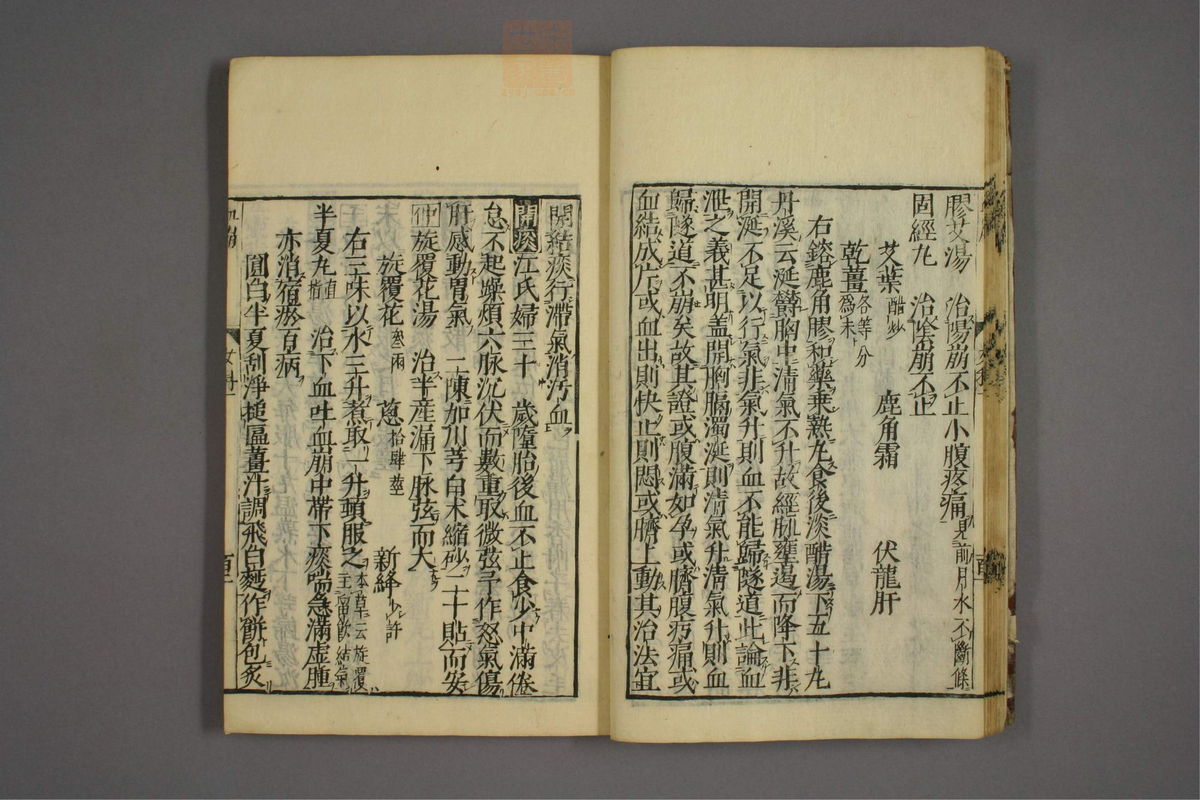 膠艾湯　治陽崩不止小腹疼痛見前月水不斷條
固經丸　治陰崩不止
艾葉醋炒　鹿角霜　伏龍肝
乾薑各等分爲末
右鎔鹿角膠和藥乗熱丸食後淡醋湯下五十丸
丹溪云涎欝胸中清氣不升故經脉壅遏而降下非
開涎不足以行氣非氣升則血不能歸隧道此論血
泄之義甚明盖開胸膈濁涎則清氣升清氣升則血
歸隧道不崩矣故其證或腹滿如孕或臍腹㽲痛或
血結成片或血出則快止則悶或臍上動其治法宜
開結痰行滯氣消汚血
開痰江氏婦三十歲墮胎後血不止食少中滿倦
怠不起躁煩六脉沉伏而數重取微弦予作怒氣傷
肝感動胃氣　二陳加川芎白术縮砂二十貼而安
仲旋覆花湯　治半産漏下脉弦而大
旋覆花叁兩　葱拾肆莖　新絳少許
右三味以水三升煮取一升頭服之本草云旋覆主畱飲結氣
半夏丸直指　治下血吐血崩中帶下痰喘急滿虛腫
亦消宿瘀百病
圓白半夏刮淨搥區薑汁調飛白麪作餅包炙